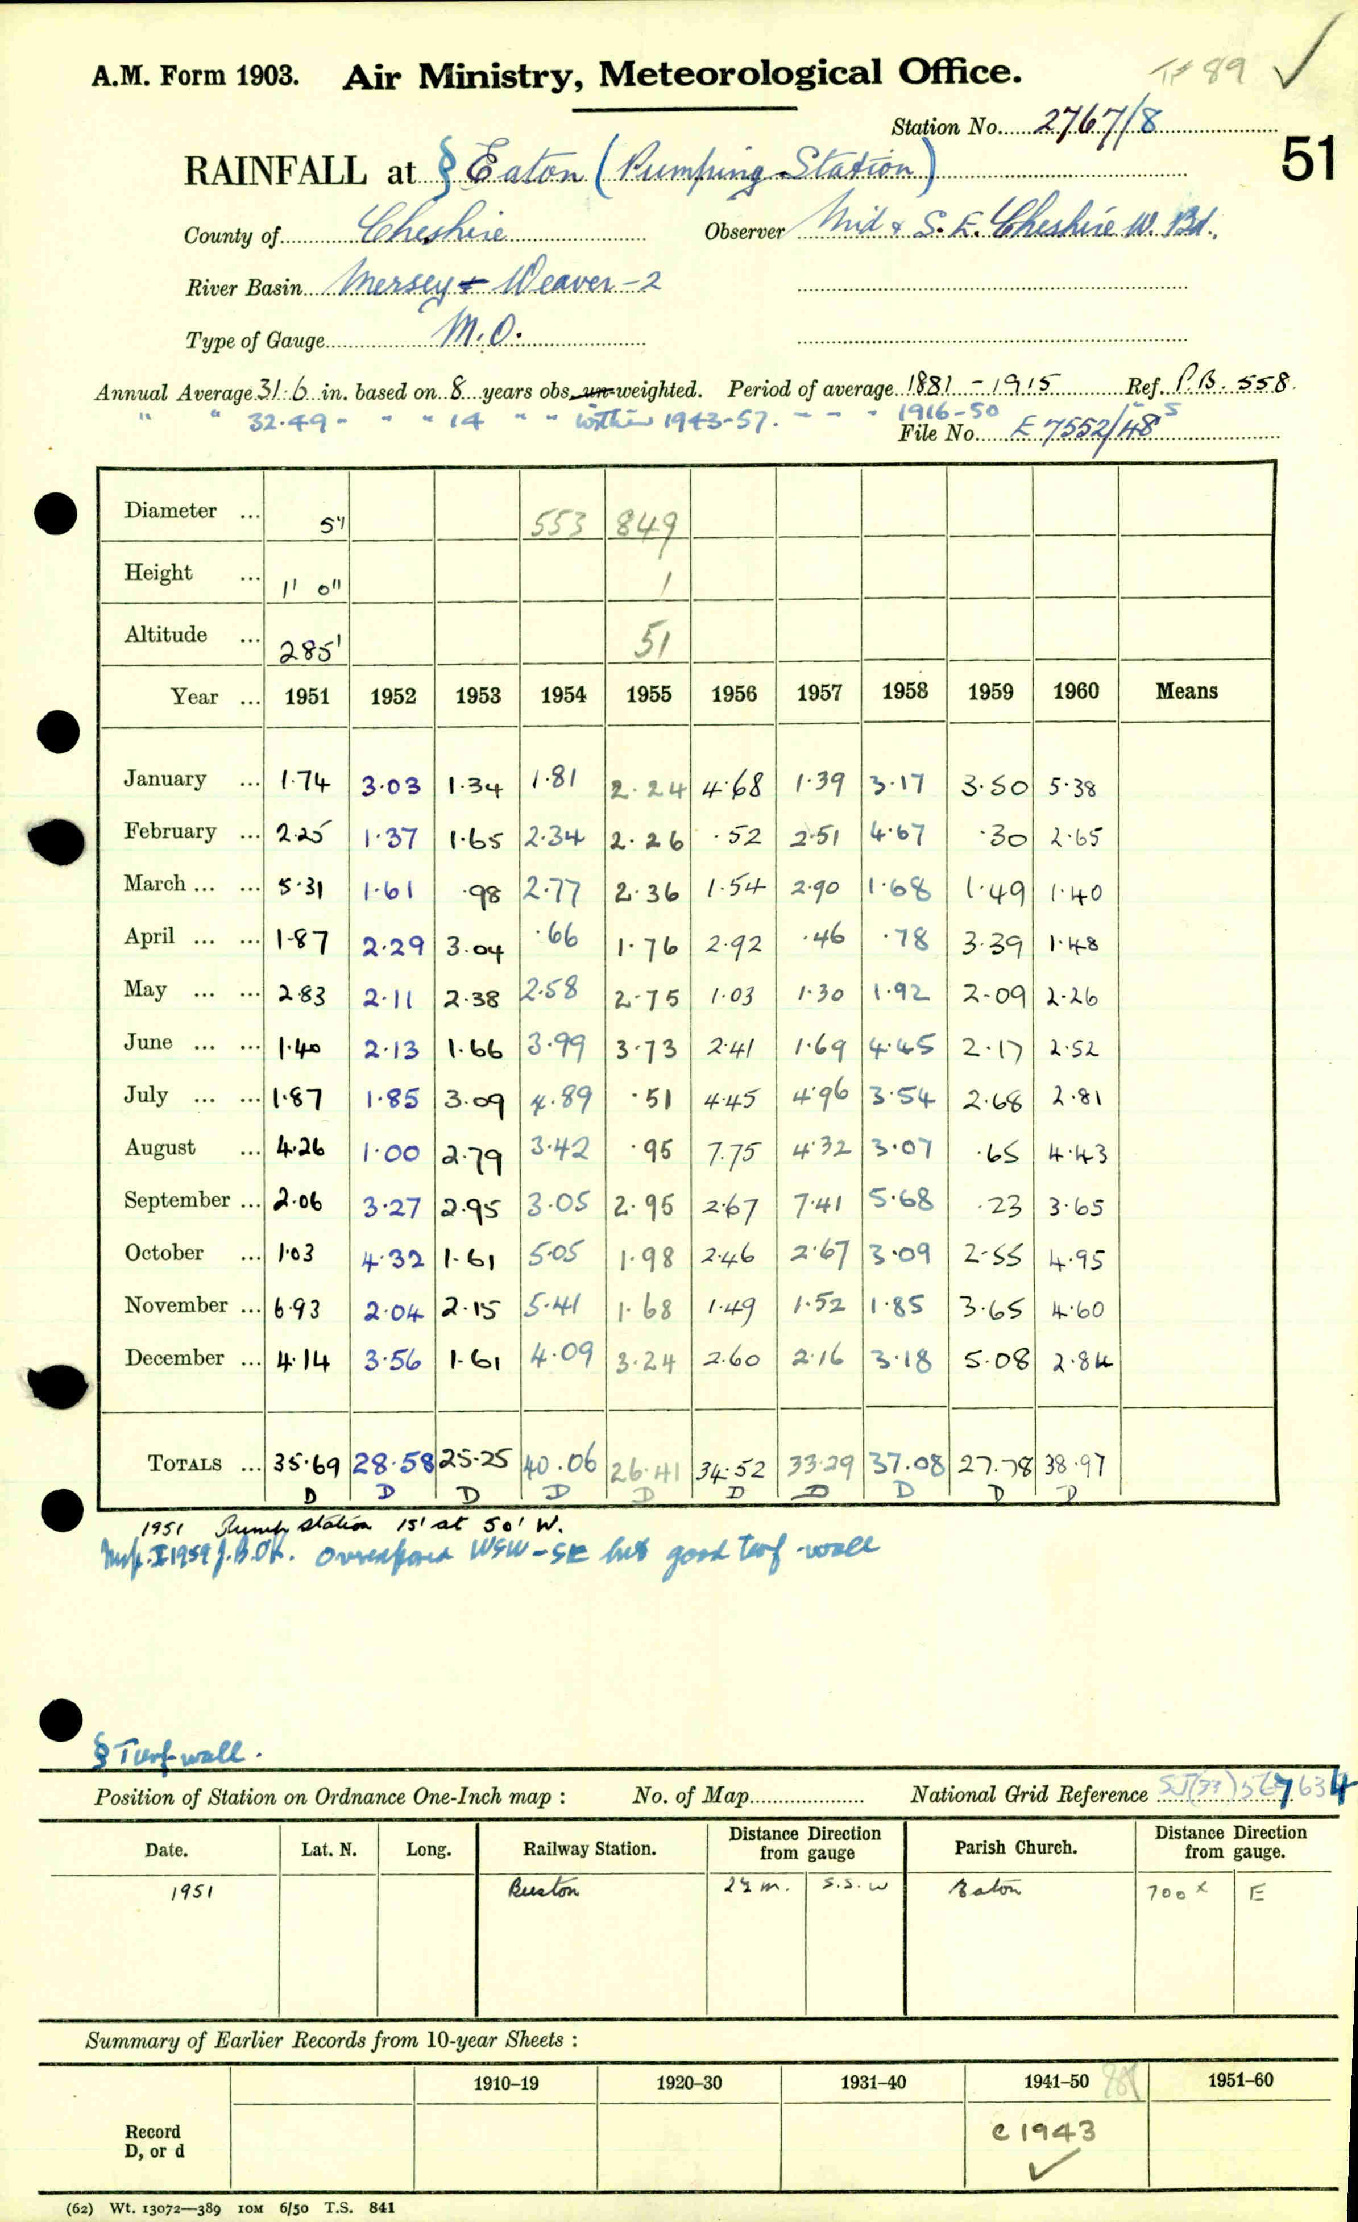 A.M. Form 1903. Air Ministry, Meteorological Office. 89 ✓
Station No. 2767/8
51
RAINFALL at § Eaton (Pumping Station)
County of Cheshire Observer Mid & S.E. Cheshire W. Bd.
River Basin Mersey & Weaver -2
Type of Gauge M.O.
Annual Average 31.6 in. based on 8 years obs. un-weighted. Period of average 1881 - 1915 Ref. P.B. 558.
" " 32.49 - " " 14 " " within 1943-57. - - - 1916-50 " 5
File No. E 7552/48
Diameter ... 5" 553 849
Height ... 1' 0" 1
Altitude ... 285' 51
Year ... 1951 1952 1953 1954 1955 1956 1957 1958 1959 1960 Means
January ... 1.74 3.03 1.34 1.81 2.24 4.68 1.39 3.17 3.50 5.38
February ... 2.25 1.37 1.65 2.34 2.26 .52 2.51 4.67 .30 2.65
March ... ... 5.31 1.61 .98 2.77 2.36 1.54 2.90 1.68 1.49 1.40
April ... ... 1.87 2.29 3.04 .66 1.76 2.92 .46 .78 3.39 1.48
May ... ... 2.83 2.11 2.38 2.58 2.75 1.03 1.30 1.92 2.09 2.26
June ... ... 1.40 2.13 1.66 3.99 3.73 2.41 1.69 4.45 2.17 2.52
July ... ... 1.87 1.85 3.09 4.89 .51 4.45 4.96 3.54 2.68 2.81
August ... 4.26 1.00 2.79 3.42 .95 7.75 4.32 3.07 .65 4.43
September ... 2.06 3.27 2.95 3.05 2.95 2.67 7.41 5.68 .23 3.65
October ... 1.03 4.32 1.61 5.05 1.98 2.46 2.67 3.09 2.55 4.95
November ... 6.93 2.04 2.15 5.41 1.68 1.49 1.52 1.85 3.65 4.60
December ... 4.14 3.56 1.61 4.09 3.24 2.60 2.16 3.18 5.08 2.84
TOTALS ... 35.69 28.58 25.25 40.06 26.41 34.52 33.29 37.08 27.78 38.97
D D D D D D D D D D
1951 Pump station 15' at 50' W.
Insp. I 1959 J.B.OK. Overexposed WSW-SE but good turf wall
§ Turf wall.
Position of Station on Ordnance One-Inch map : No. of Map National Grid Reference SJ(33) 634
Date. Lat. N. Long. Railway Station. Distance from Direction gauge Parish Church. Distance from Direction gauge.
1951 2½ m. S.S.W Eaton 700 x E
Summary of Earlier Records from 10-year Sheets :
1910–19 1920–30 1931–40 1941–50 1951–60
Record D, or d c 1943 ✓
(62) Wt. 13072—389 10M 6/50 T.S. 841